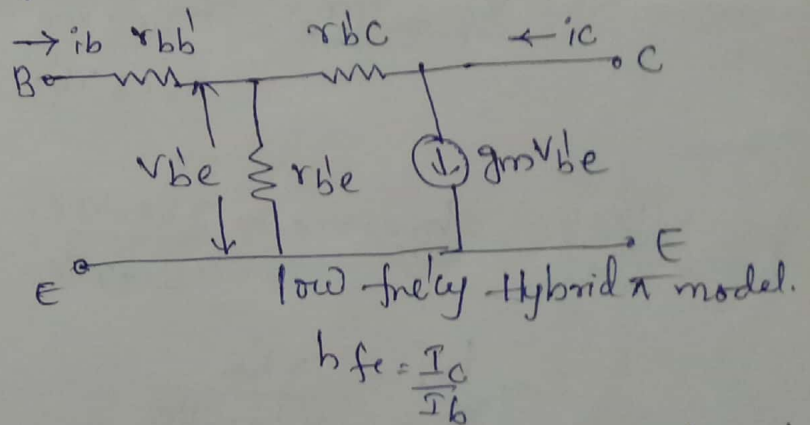 → ib rbb' rb'c ← ic
B C
Vb'e rb'e gmVb'e
E E
low fre'cy Hybrid π model.
hfe = Ic
Ib